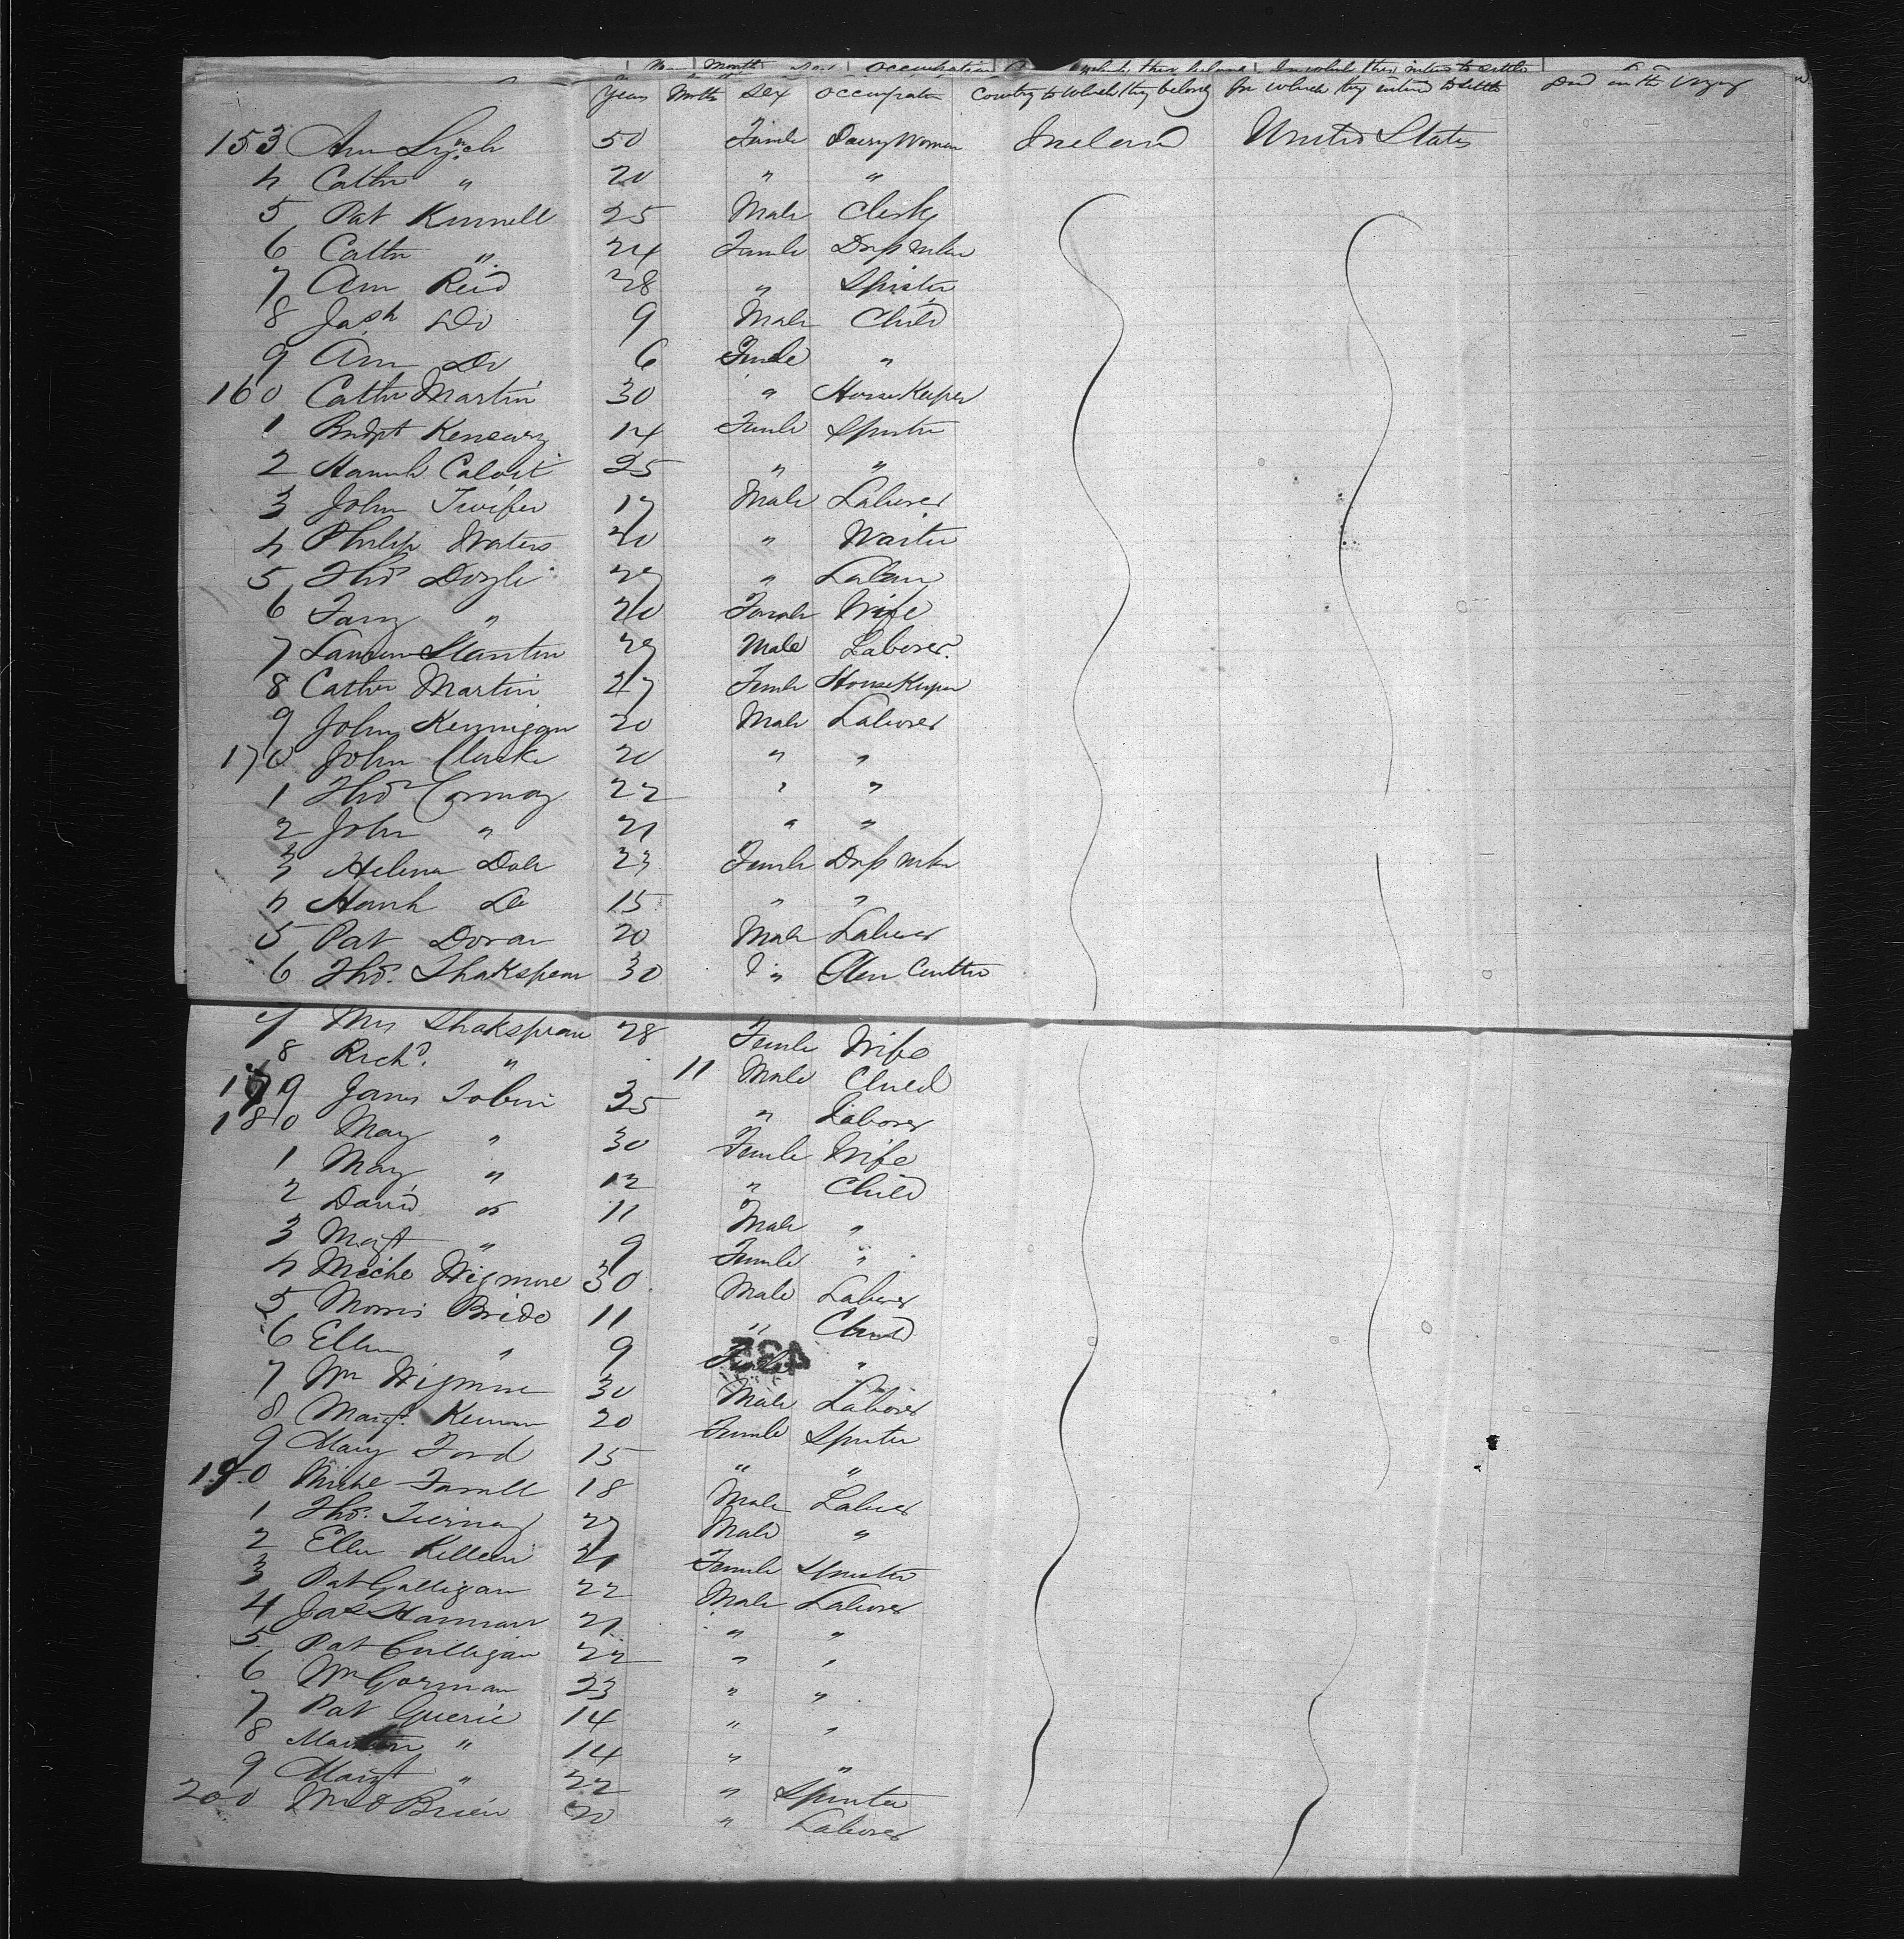 Years Mnths Sex Occupation Country to which they belong In which they intend to settle Died on the Voyage
153 Ann Lynch 50 Female Dairy Woman Ireland United States
4 Cathn " 20 " "
5 Pat Kinnell 25 Male Clerk
6 Cathn " 24 Female Dress Mkr
7 Ann Reid 28 " Spinster
8 Jash Do 9 Male Child
9 Ann Do 6 Female "
160 Cathn Martin 30 " House Keeper
1 Bridgt 14 Female Spinster
2 Hannah 25 " "
3 John 17 Male Laborer
4 Philip Waters 20 " Waiter
5 Thos Doyle 27 " Laborer
6 Fany " 20 Female Wife
7 Stanton 27 Male Laborer
8 Cathn Martin 27 Female House Keeper
9 John Kernigan 20 Male Laborer
170 John Clarke 20 " "
1 Thos Cormay 22 " "
2 John " 21 " "
3 Helena Dale 23 Female Dress Mkr
4 Hanh Do 15 " "
5 Pat Doran 20 Male Laborer
6 Thos. Shakspear 30 "
7 Mrs Shakspear 28 Female Wife
8 Richd. " 11 Male Child
179 James Tobin 35 " Laborer
180 Mary " 30 Female Wife
1 Mary " 12 " Child
2 David " 11 Male "
3 Margt " 9 Female "
4 Miche Wigmore 30 Male Laborer
5 Morris Bride 11 " Child
6 Ellen " 9 Female "
7 Wm Wigmore 30 Male Laborer
8 Margt. 20 Female Spinster
9 Mary Ford 15 " "
190 Miche Farrell 18 Male Laborer
1 Thos. Tiernay 27 Male "
2 Ellen Killeen 21 Female Spinster
3 Pat Galligan 22 Male Laborer
4 Jas Hannan 21 " "
5 Pat Culligan 22 " "
6 Wm Gorman 23 " "
7 Pat Guerie 14 " "
8 Martin " 14 " "
9 Margt " 22 " Spinster
200 Wm O Brien 20 " Laborer